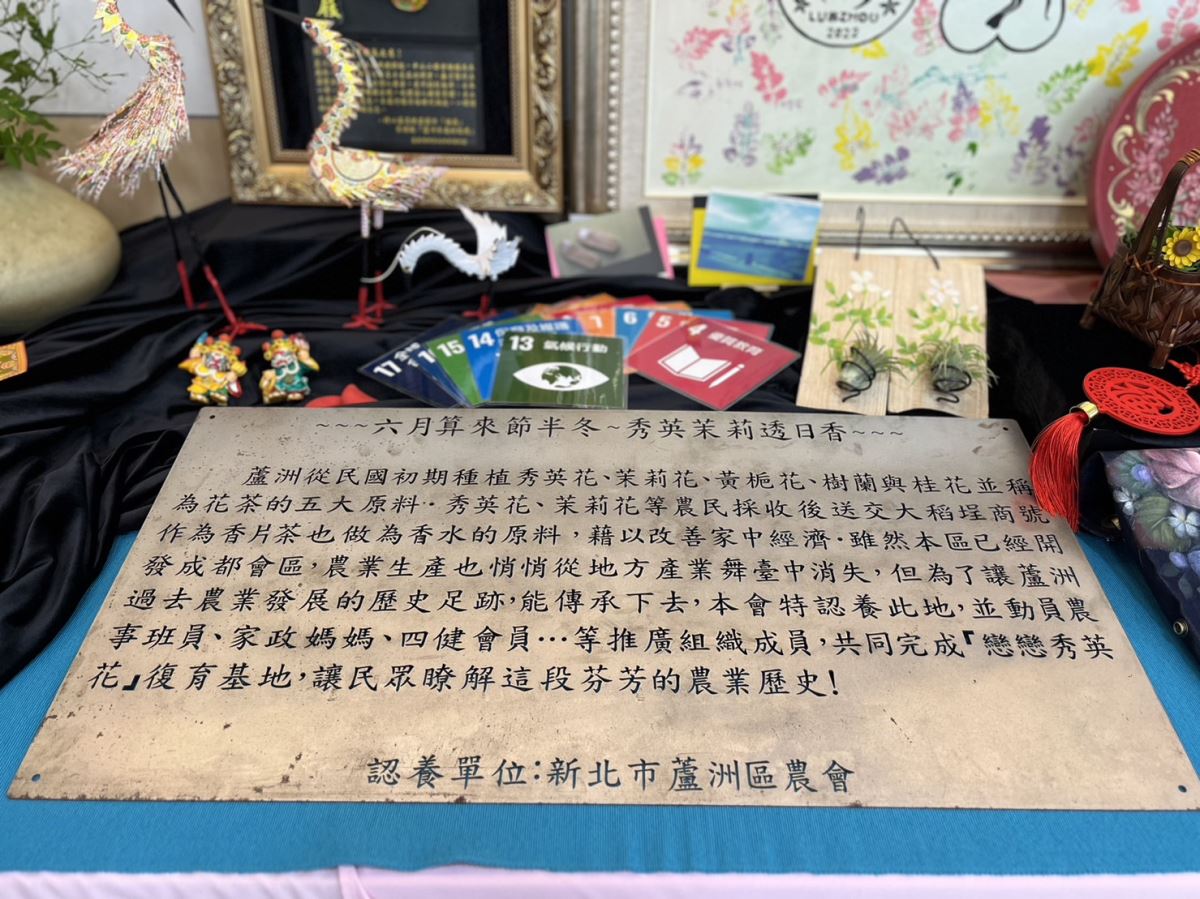 LUZHOU
2022
17
15
14
13 氣候行動
7
6
5
4 優質教育
~~~六月算來節半冬~秀英茉莉透日香~~~
蘆洲從民國初期種植秀英花、茉莉花、黃梔花、樹蘭與桂花並稱
為花茶的五大原料．秀英花、茉莉花等農民採收後送交大稻埕商號
作為香片茶也做為香水的原料，藉以改善家中經濟．雖然本區已經開
發成都會區，農業生產也悄悄從地方產業舞臺中消失，但為了讓蘆洲
過去農業發展的歷史足跡，能傳承下去，本會特認養此地，並動員農
事班員、家政媽媽、四健會員…等推廣組織成員，共同完成『戀戀秀英
花』復育基地，讓民眾瞭解這段芬芳的農業歷史！
認養單位：新北市蘆洲區農會